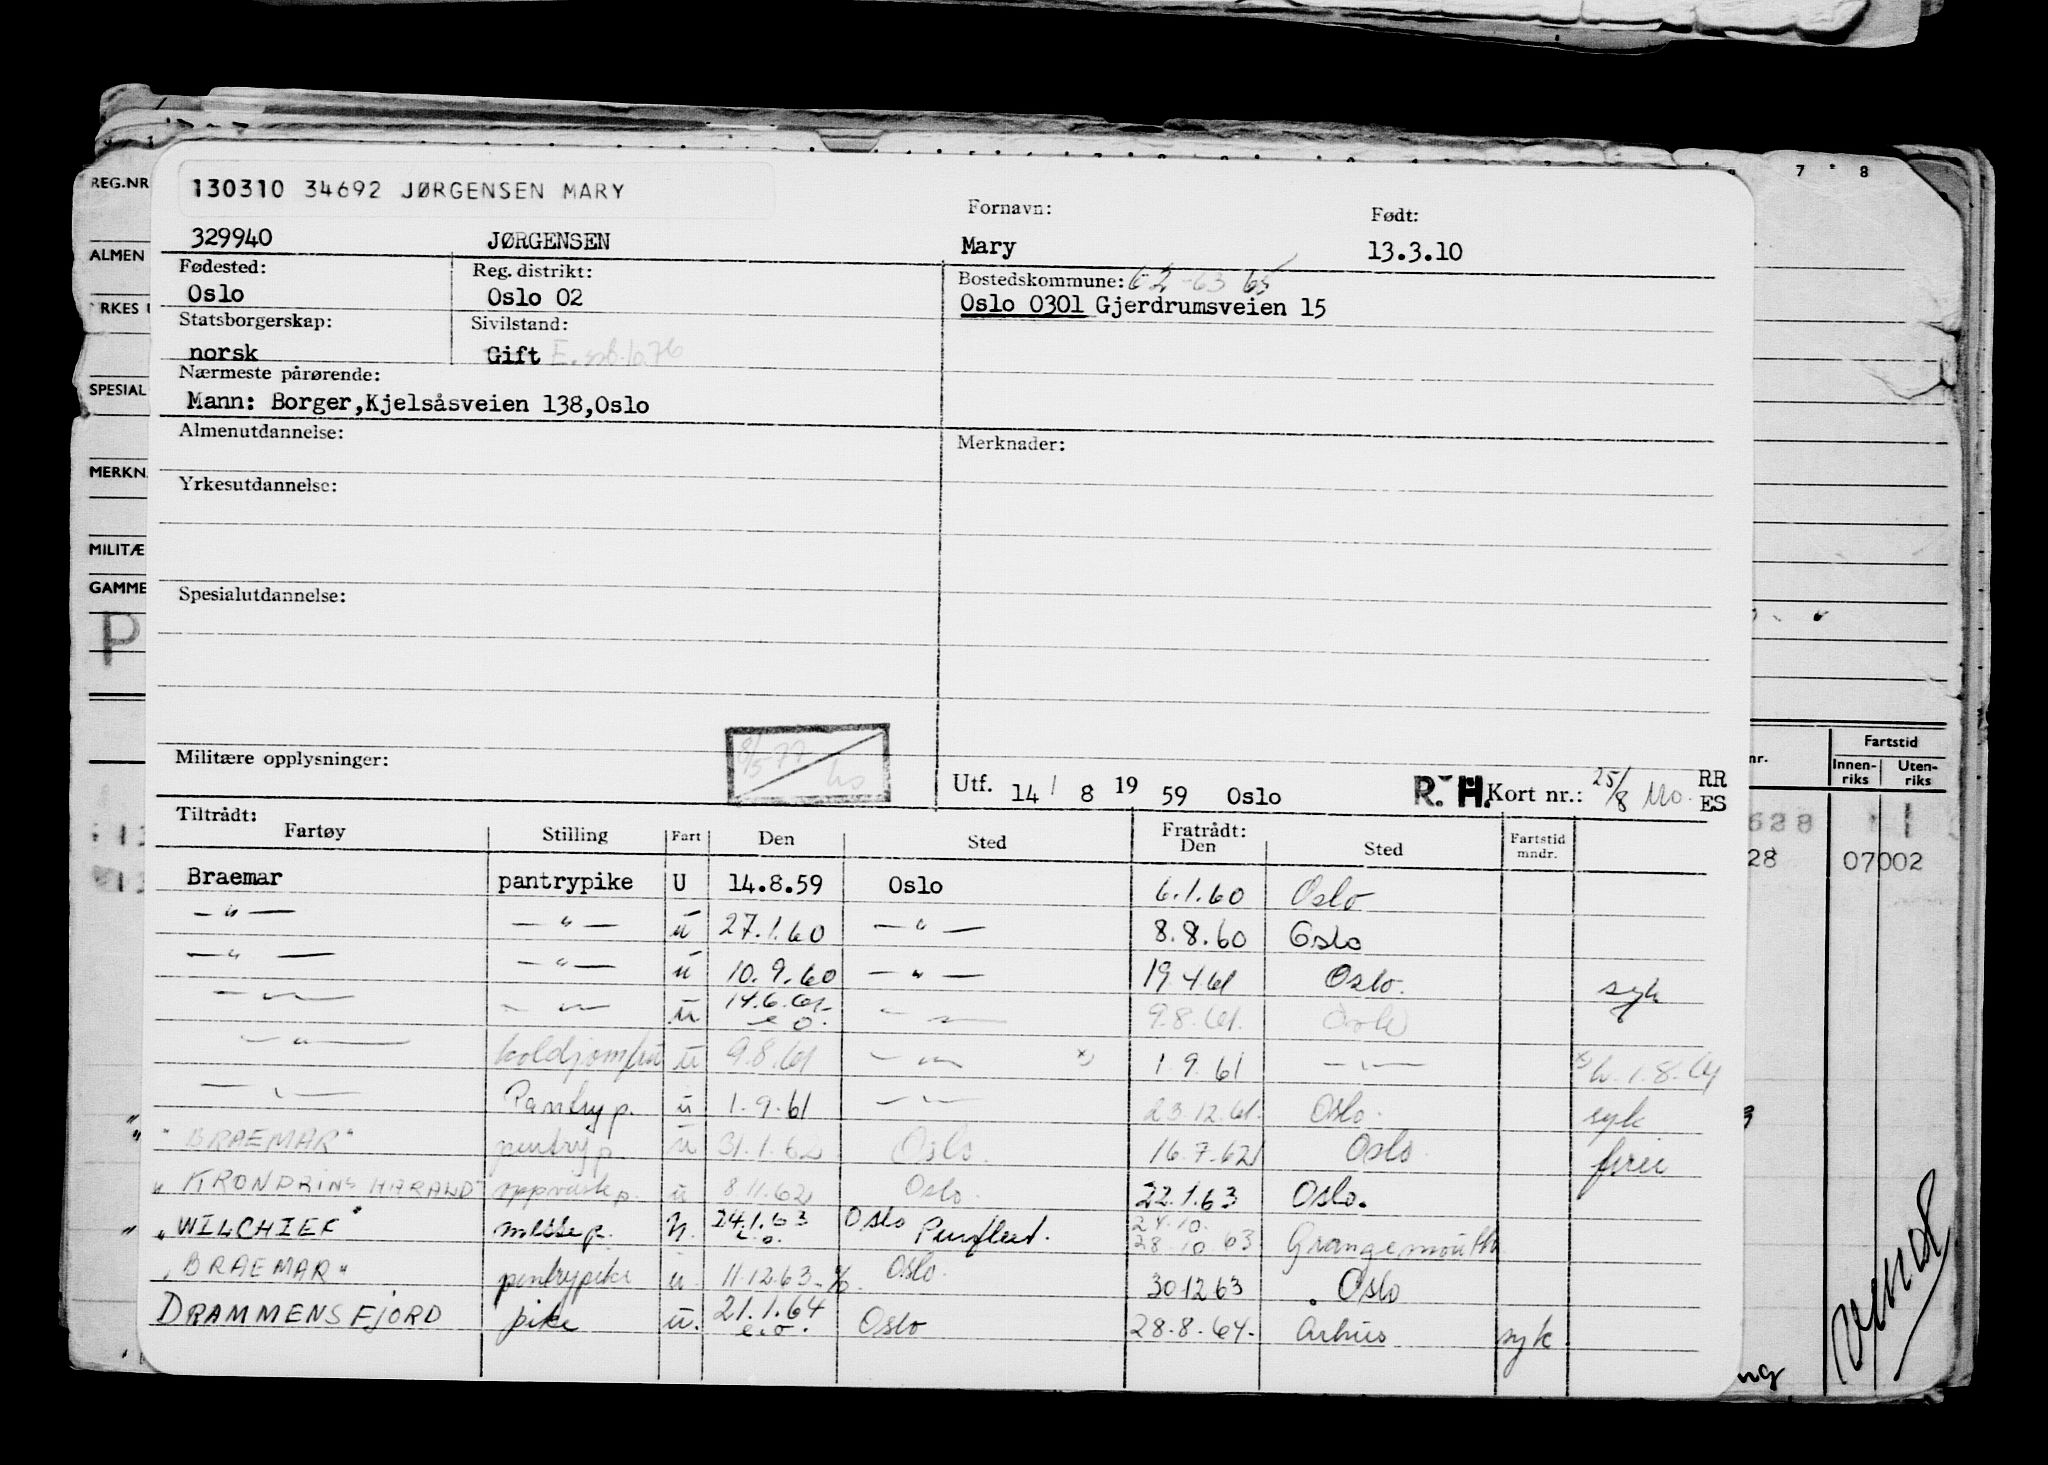 7 8
REG.NR
130310 34692 JØRGENSEN MARY
Fornavn: Født:
329940 JØRGENSEN Mary 13.3.10
ALMEN
Fødested: Reg. distrikt: Bostedskommune: 62-63 65
Oslo Oslo 02 Oslo 0301 Gjerdrumsveien 15
Statsborgerskap: Sivilstand:
norsk Gift
Nærmeste pårørende:
SPESIAL
Mann: Borger,Kjelsåsveien 138,Oslo
Almenutdannelse: Merknader:
MERKN
Yrkesutdannelse:
MILITÆ
GAMME
Spesialutdannelse:
P
Militære opplysninger:
Utf. 14/ 8 19 59 Oslo R. H. Kort nr.: 25/8 RR
ES
nr. Fartstid
Innenriks Utenriks
628
28 07002
Tiltrådt: Fratrådt:
Fartøy Stilling Fart Den Sted Den Sted Fartstid mndr.
Braemar pantrypike U 14.8.59 Oslo 6.1.60 Oslo
—"— —"— u 27.1.60 —"— 8.8.60 Oslo
—"— —"— u 10.9.60 —"— 19.4.61 Oslo. syk
—"— —"— u 14.6.61 e.o. —"— 9.8.61. Oslo
—"— koldjomfru u 9.8.61 —"— x) 1.9.61 —"—
—"— Pantryp. u 1.9.61 —"— 23.12.61. Oslo. syk
"BRAEMAR" pantryp. u 31.1.62 Oslo. 16.7.62 Oslo ferie
"KRONPRINS HARALD" oppvaskp. u 8.11.62 Oslo. 22.1.63 Oslo.
"WILCHIEF" messep. N. 24.1.63 e.o. Oslo Purfleet. 24.10. 28.10.63 Grangemouth
"BRAEMAR" pantrypike u. 11.12.63 Oslo. 30.12.63 Oslo
DRAMMENSFJORD pike u. 21.1.64 e.o. Oslo 28.8.64. Århus syk